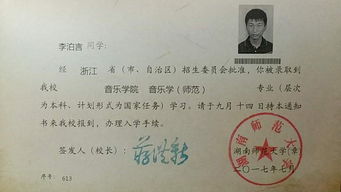 李泊言 同学：
经 浙江 省（市、自治区）招生委员会批准，你被录取到
我校 音乐学院 音乐学（师范） 专业（层次
为本科、计划形式为国家任务）学习。请于九月十四日持本通知
书来我校报到，办理入学手续。
签发人（校长）： 蒋洪新
湖南师范大学（章
二〇一七年七月
序号 613
湖南师范大学